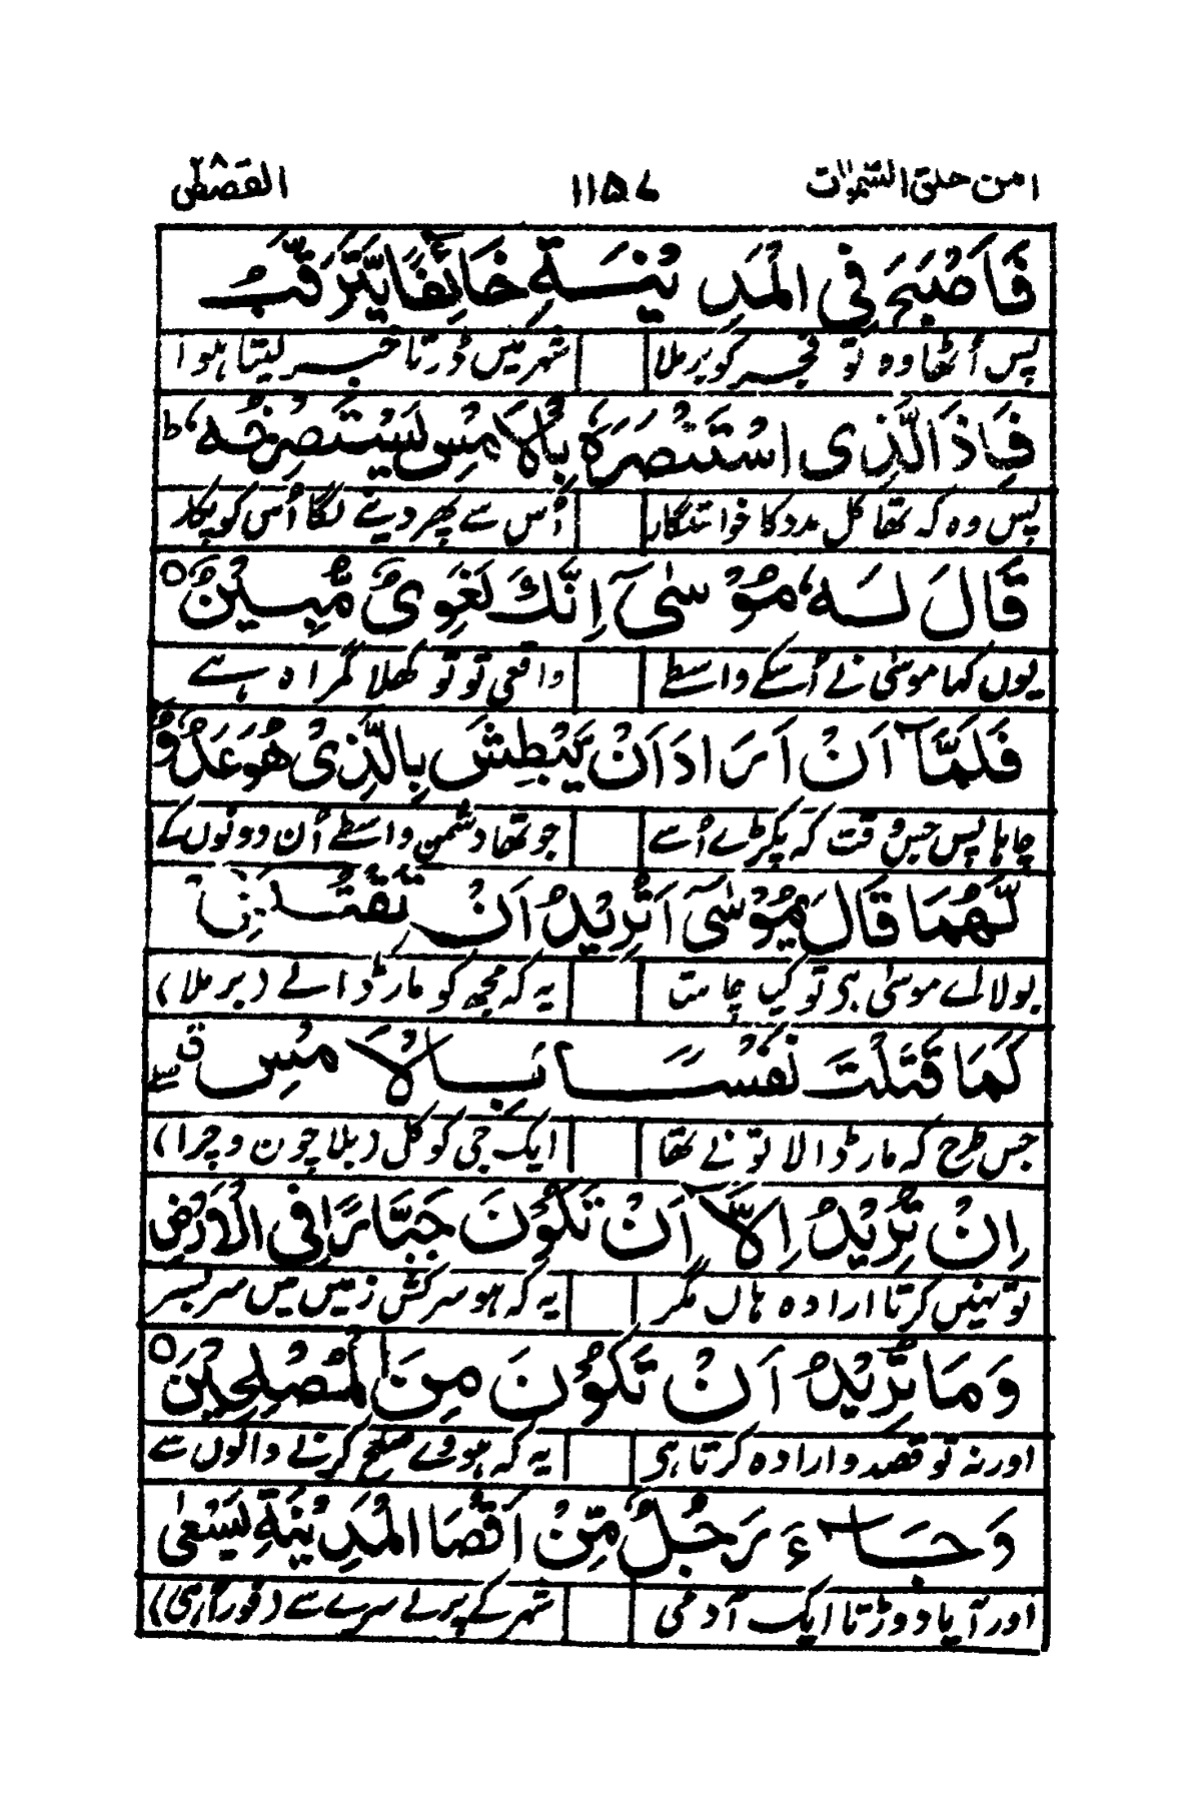 امن خلق السموات ۱۱۵۷ القصص ۲۸
فَاَصْبَحَ فِی الْمَدِیْنَةِ خَآئِفًا یَّتَرَقَّبُ
پس اُٹھا وہ تو فجر کو برملا شہر میں ڈرتا خبر لیتا ہوا
فَاِذَا الَّذِی اسْتَنْصَرَهٗ بِالْاَمْسِ یَسْتَصْرِخُهٗ ؕ
پس وہ کہ تھا کل مدد کا خواستگار اُس سے پھر دینے لگا اُس کو پکار
قَالَ لَهٗ مُوْسٰۤی اِنَّكَ لَغَوِیٌّ مُّبِیْنٌ ○
یوں کہا موسٰی نے اُسکے واسطے واقعی تو تو کھلا گمراہ ہے
فَلَمَّاۤ اَنْ اَرَادَ اَنْ یَّبْطِشَ بِالَّذِیْ هُوَ عَدُوٌّ
چاہا پس جس وقت کہ پکڑے اُسے جو تھا دشمن واسطے اُن دونوں کے
لَّهُمَا قَالَ یٰمُوْسٰۤی اَتُرِیْدُ اَنْ تَقْتُلَنِیْ
بولا اے موسٰی ہی تو کیا چاہتا یہ کہ مجھ کو مار ڈالے (برملا)
كَمَا قَتَلْتَ نَفْسًا بِالْاَمْسِ ق
جس طرح کہ مار ڈالا تو نے تھا ایک جی کو کل (بلا چون و چرا)
اِنْ تُرِیْدُ اِلَّاۤ اَنْ تَكُوْنَ جَبَّارًا فِی الْاَرْضِ
تو نہیں کرتا ارادہ ہاں مگر یہ کہ ہو سرکش زمیں میں سربسر
وَمَا تُرِیْدُ اَنْ تَكُوْنَ مِنَ الْمُصْلِحِیْنَ ○
اور نہ تو قصد و ارادہ کرتا ہی یہ کہ ہووے صلح کرنے والوں سے
وَجَآءَ رَجُلٌ مِّنْ اَقْصَا الْمَدِیْنَةِ یَسْعٰی
اور آیا دوڑتا ایک آدمی شہر کے پرلے سرے سے (فوراً ہی)